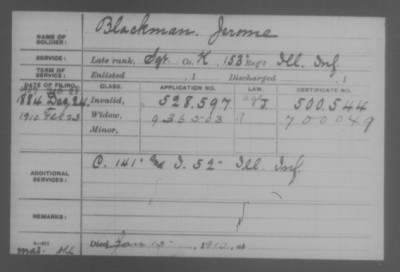 NAME OF SOLDIER: Blackman, Jerome
SERVICE: Late rank, Sgt Co. K, 153" Reg't Ill. Inf.
TERM OF SERVICE: Enlisted , 1 Discharged , 1
DATE OF FILING. CLASS. APPLICATION NO. LAW. CERTIFICATE NO.
1884 Dec 24 Invalid, 528.597 J 500.544
1912 Feb 23 Widow, 700049
Minor,
ADDITIONAL SERVICES: C. 141" I. 52" Ill. Inf.
REMARKS:
Died Jan 1912, at